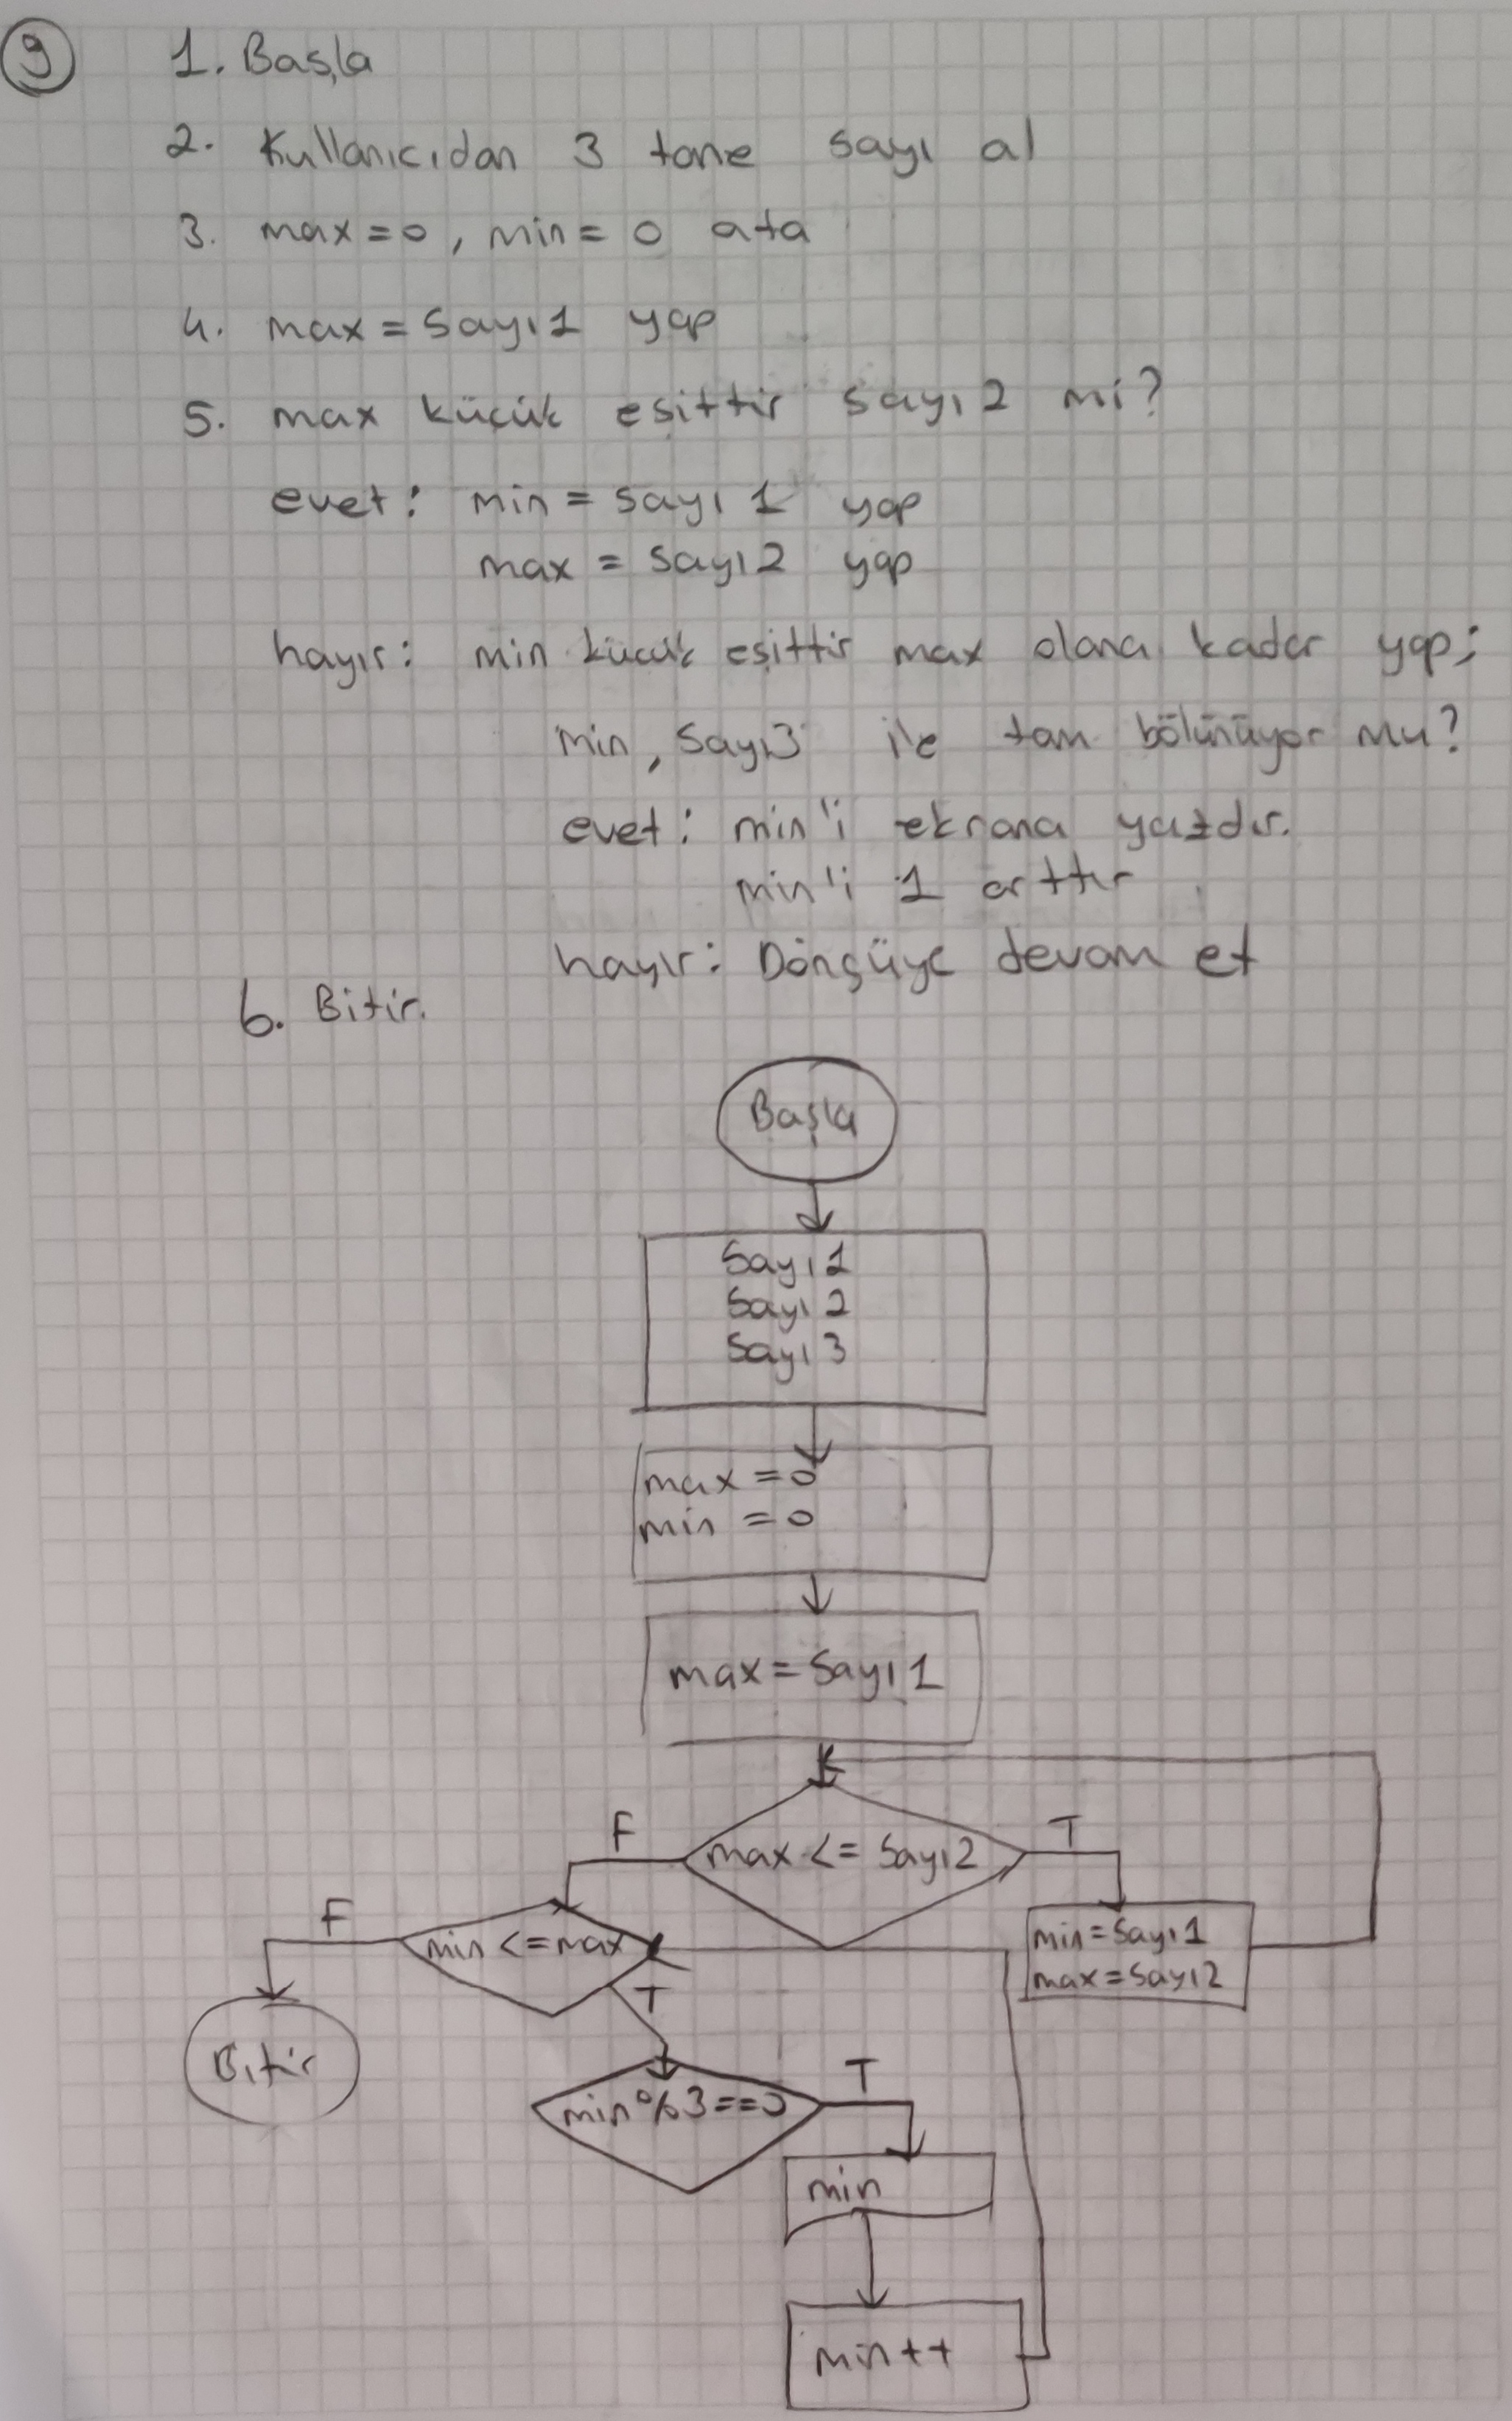 9
1. Başla
2. Kullanıcıdan 3 tane sayı al
3. max=0, min=0 ata
4. max=Sayı1 yap
5. max küçük eşittir sayı2 mi?
evet: min = sayı 1 yap
max = sayı2 yap
hayır: min küçük eşittir max olana kadar yap;
min, Sayı3 ile tam bölünüyor mu?
evet: min'i ekrana yazdır.
min'i 1 arttır
hayır: Döngüye devam et
6. Bitir.
Başla
Sayı1
Sayı2
Sayı3
max=0
min=0
max=Sayı1
F
max<=Sayı2
T
F
min<=max
T
min=Sayı1
max=Sayı2
Bitir
min%3==0
T
min
min++